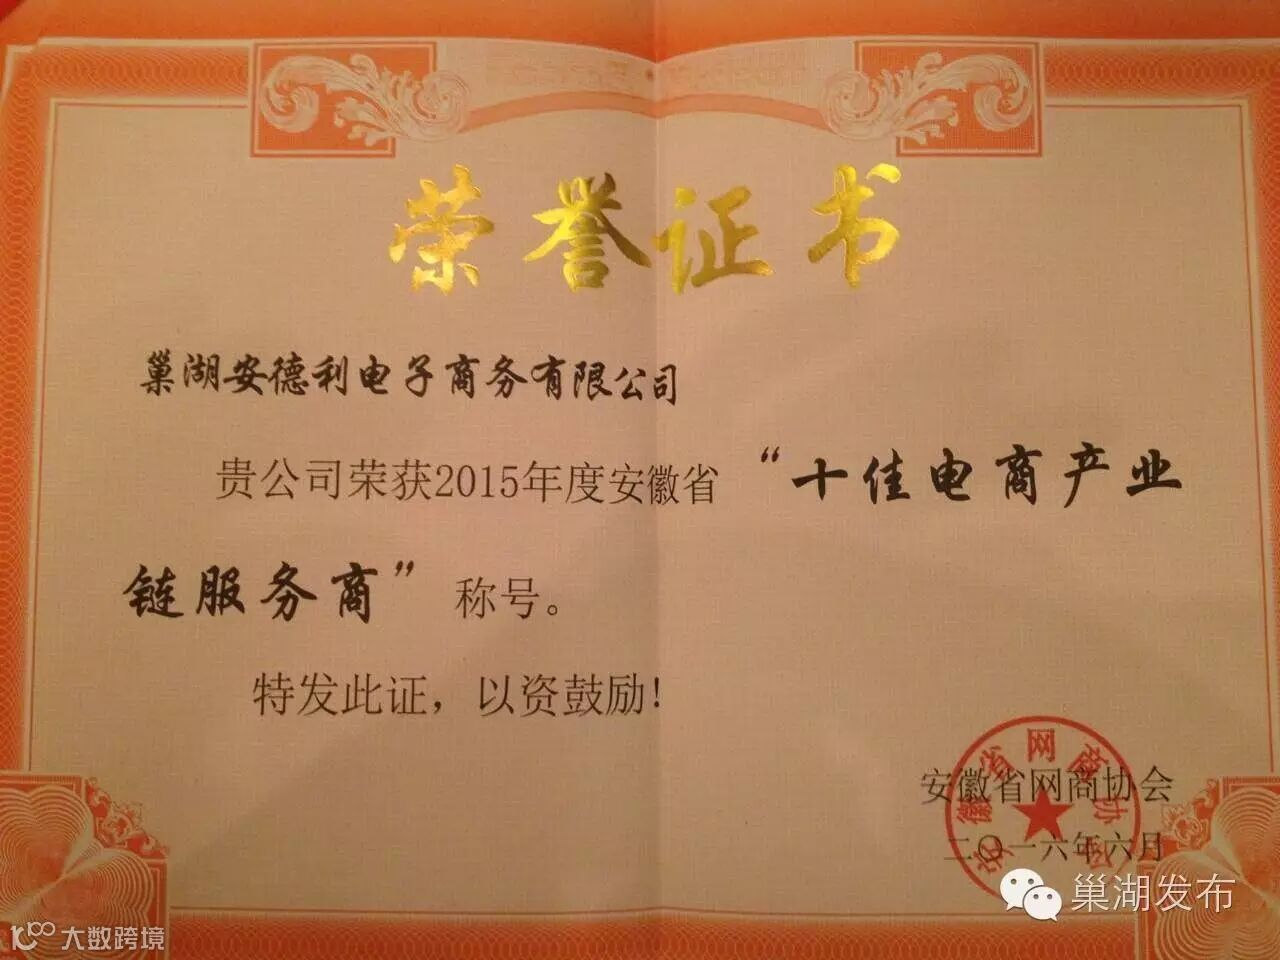 荣誉证书
巢湖安德利电子商务有限公司
贵公司荣获2015年度安徽省“十佳电商产业
链服务商”称号。
特发此证，以资鼓励！
安徽省网商协会
安徽省网商协会
二〇一六年六月
巢湖发布
大数跨境